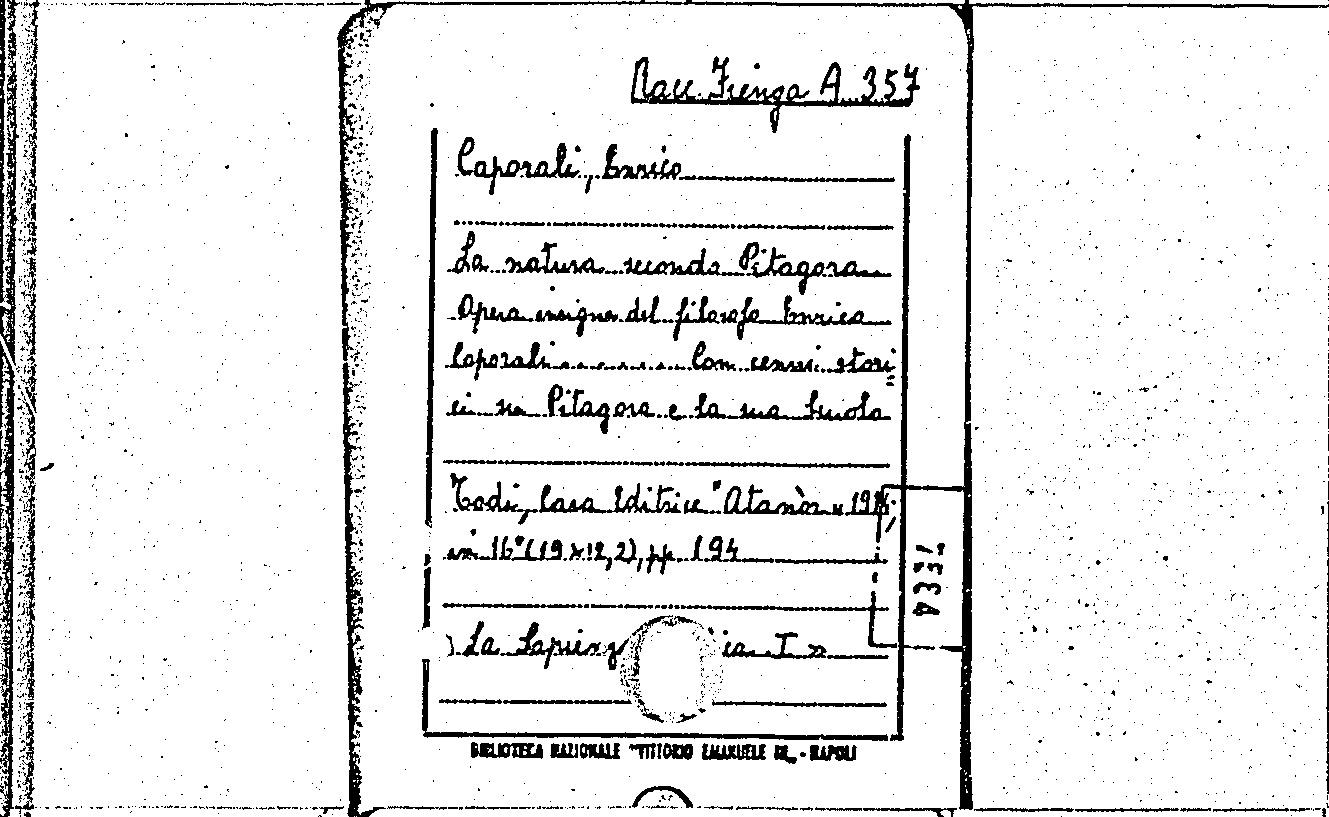 Racc. Frenga A 357
Caporali, Enrico
La natura secondo Pitagora
Opera insigne del filosofo Enrico
Caporali........ Con cenni stori
ci su Pitagora e la sua Scuola
Todi, Casa Editrice "Atanòr"
in 16° (19 x 12,2), pp. 194
La I »
BIBLIOTECA NAZIONALE "VITTORIO EMANUELE III" - NAPOLI